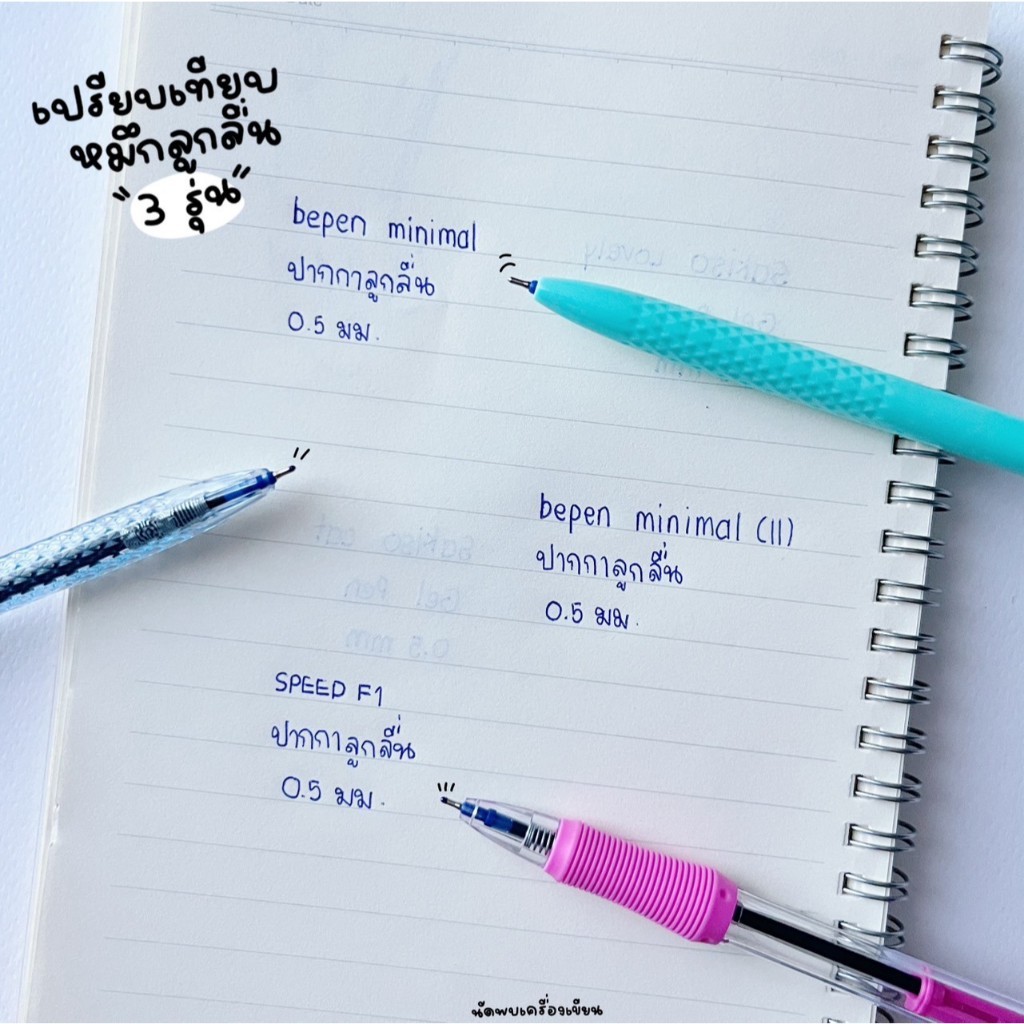 เปรียบเทียบ
หมึกลูกลื่น
"3 รุ่น"
bepen minimal
ปากกาลูกลื่น
0.5 มม.
Sakiso Lovely
bepen minimal (II)
ปากกาลูกลื่น
0.5 มม.
Sakiso cat
Gel Pen
0.5 mm
SPEED F1
ปากกาลูกลื่น
0.5 มม.
นัดพบเครื่องเขียน